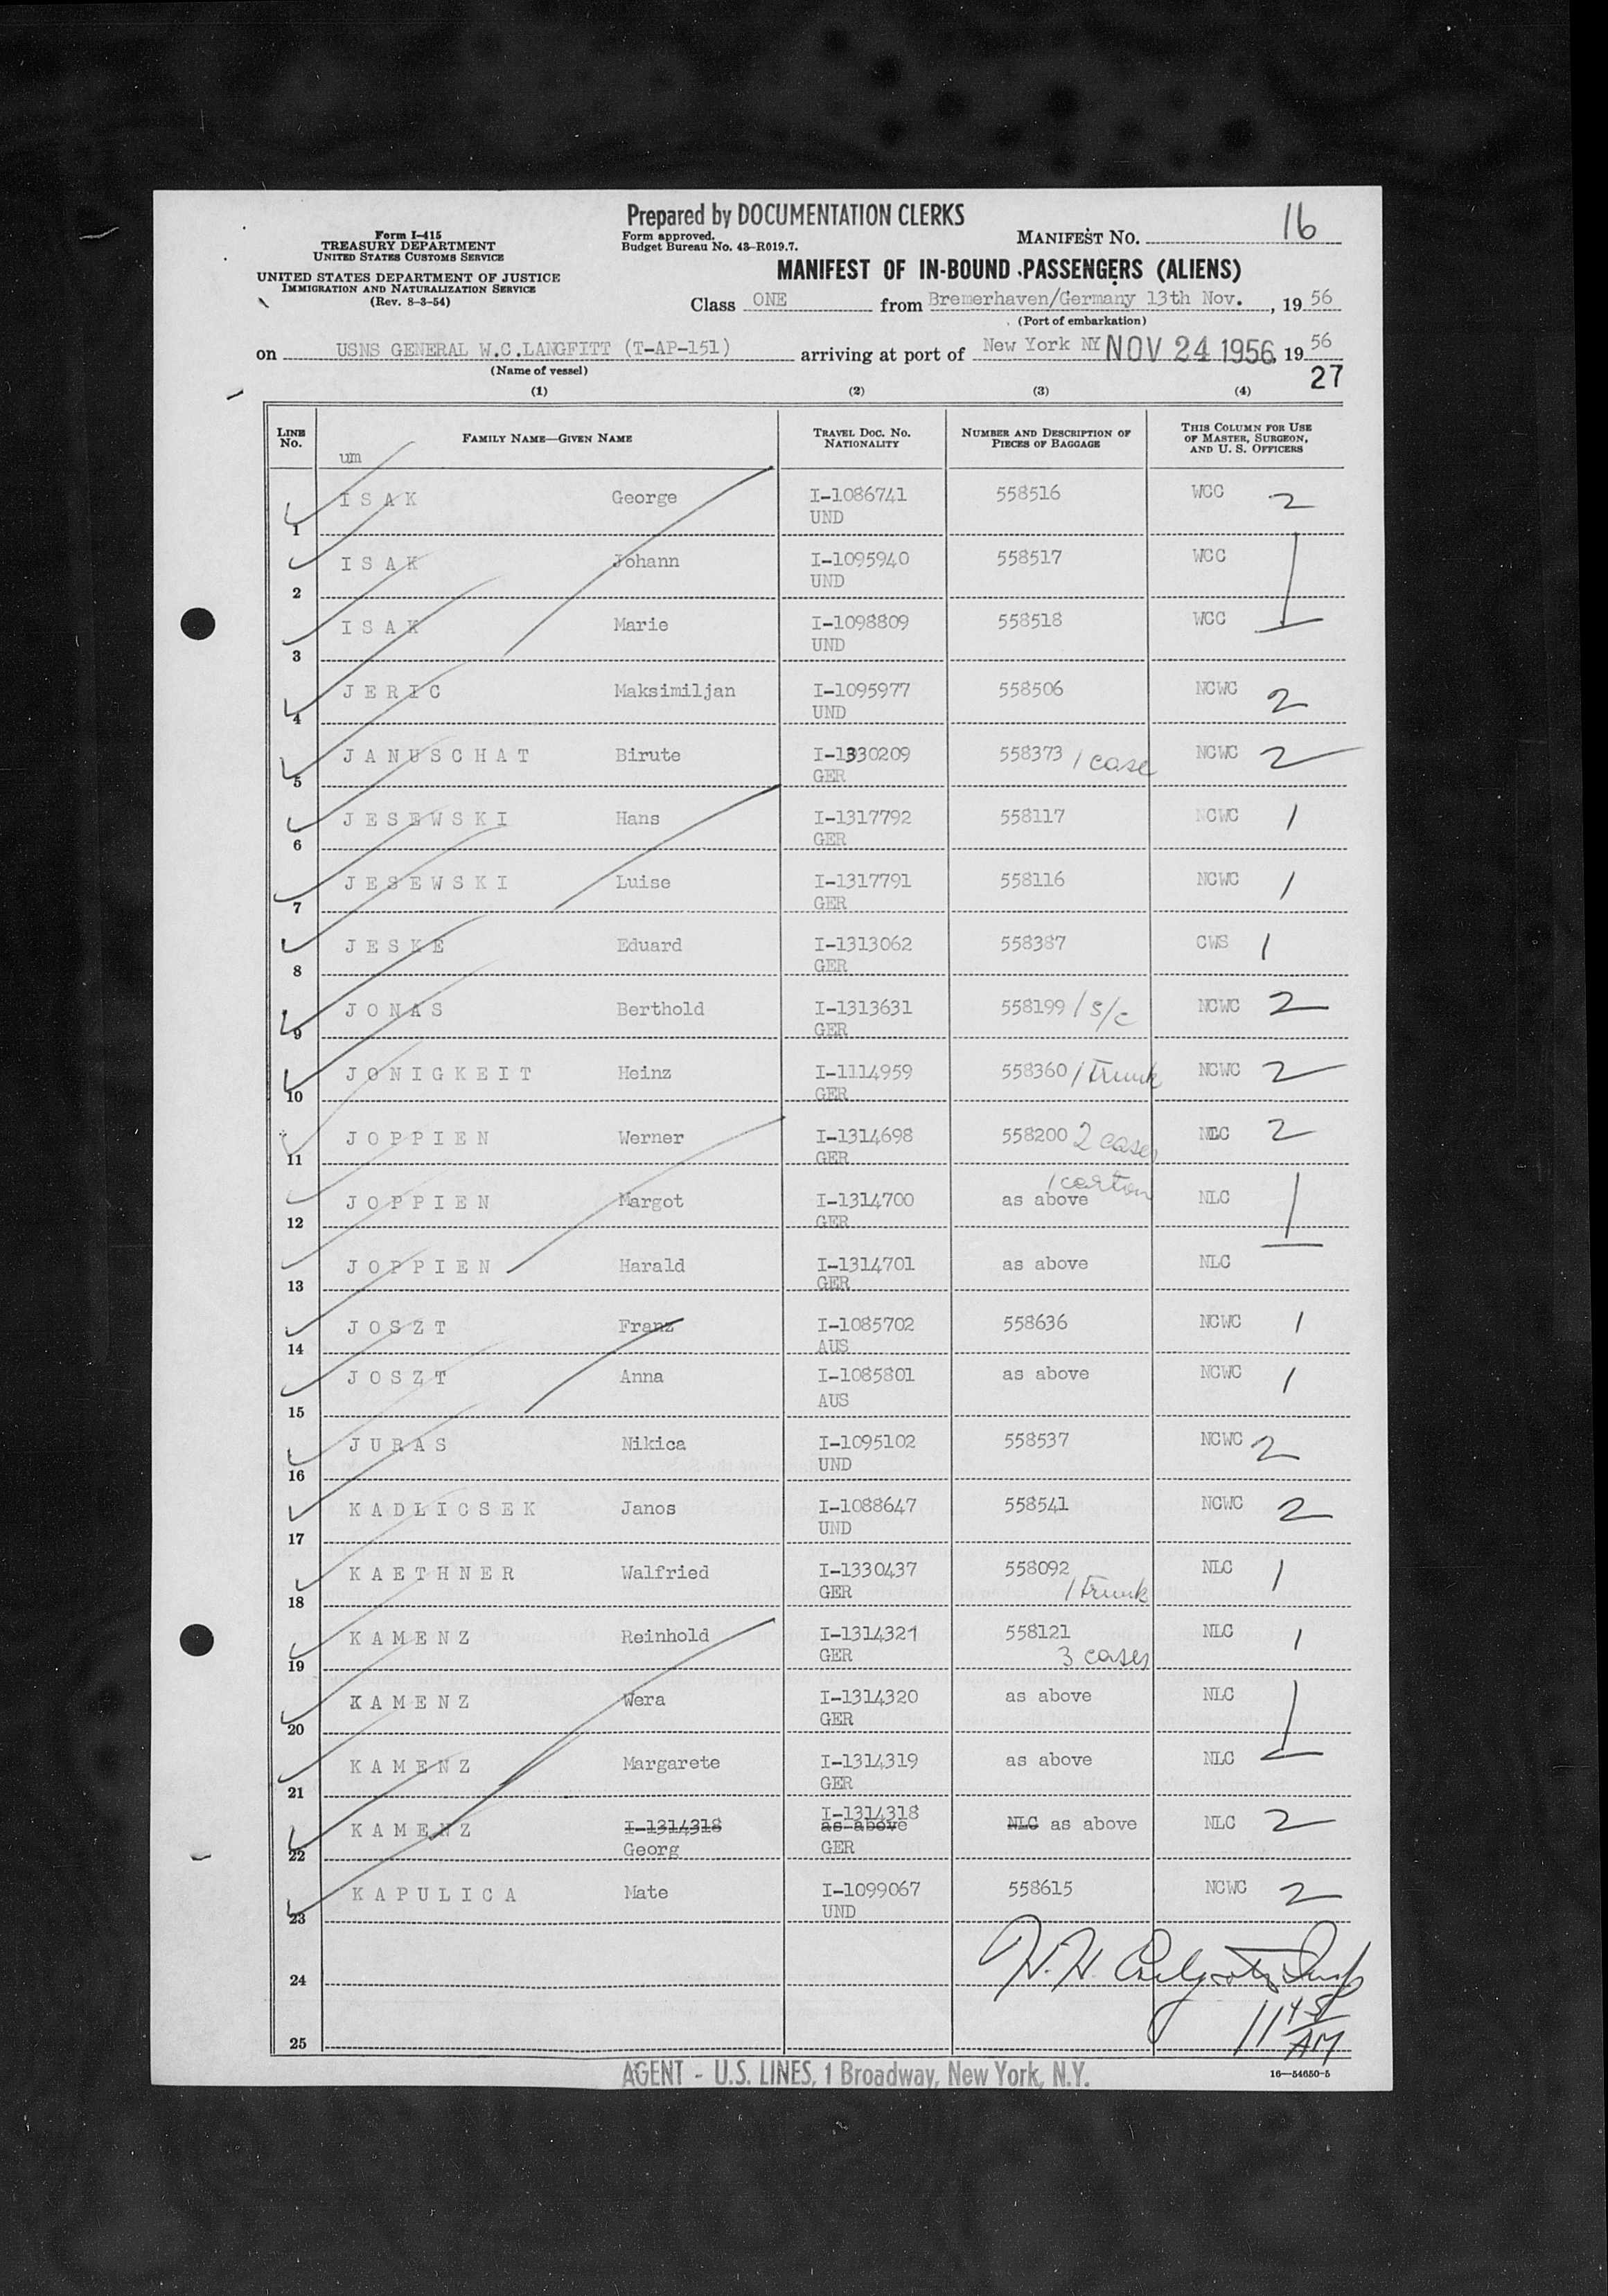 Prepared by DOCUMENTATION CLERKS
16
Form I-415
TREASURY DEPARTMENT
UNITED STATES CUSTOMS SERVICE
Form approved.
Budget Bureau No. 43-R019.7.
MANIFEST NO.
UNITED STATES DEPARTMENT OF JUSTICE
IMMIGRATION AND NATURALIZATION SERVICE
(Rev. 8-3-54)
MANIFEST OF IN-BOUND PASSENGERS (ALIENS)
Class ONE from Bremerhaven/Germany 13th Nov., 19 56
(Port of embarkation)
on USNS GENERAL W.C.LANGFITT (T-AP-151) arriving at port of New York NY NOV 24 1956, 19 56
(Name of vessel)
27
(1) (2) (3) (4)
LINE NO. FAMILY NAME—GIVEN NAME TRAVEL DOC. NO. NATIONALITY NUMBER AND DESCRIPTION OF PIECES OF BAGGAGE THIS COLUMN FOR USE OF MASTER, SURGEON, AND U. S. OFFICERS
um
1 ISAK George I-1086741 UND 558516 WCC 2
2 ISAK Johann I-1095940 UND 558517 WCC 1
3 ISAK Marie I-1098809 UND 558518 WCC
4 JERIC Maksimiljan I-1095977 UND 558506 NCWC 2
5 JANUSCHAT Birute I-1330209 GER 558373 1 case NCWC 2
6 JESEWSKI Hans I-1317792 GER 558117 NCWC 1
7 JESEWSKI Luise I-1317791 GER 558116 NCWC 1
8 JESKE Eduard I-1313062 GER 558387 CWS 1
9 JONAS Berthold I-1313631 GER 558199 1 s/c NCWC 2
10 JONIGKEIT Heinz I-1114959 GER 558360 1 Trunk NCWC 2
11 JOPPIEN Werner I-1314698 GER 558200 2 cases NLC 2
12 JOPPIEN Margot I-1314700 GER 1 carton as above NLC 1
13 JOPPIEN Harald I-1314701 GER as above NLC
14 JOSZT Franz I-1085702 AUS 558636 NCWC 1
15 JOSZT Anna I-1085801 AUS as above NCWC 1
16 JURAS Nikica I-1095102 UND 558537 NCWC 2
17 KADLICSEK Janos I-1088647 UND 558541 NCWC 2
18 KAETHNER Walfried I-1330437 GER 558092 1 Trunk NLC 1
19 KAMENZ Reinhold I-1314321 GER 558121 3 cases NLC 1
20 KAMENZ Wera I-1314320 GER as above NLC 1
21 KAMENZ Margarete I-1314319 GER as above NLC
22 KAMENZ I-1314318 Georg I-1314318 as above GER NLC as above NLC 2
23 KAPULICA Mate I-1099067 UND 558615 NCWC 2
24
25
11 45 AM
AGENT - U.S. LINES, 1 Broadway, New York, N.Y.
16—54650-5